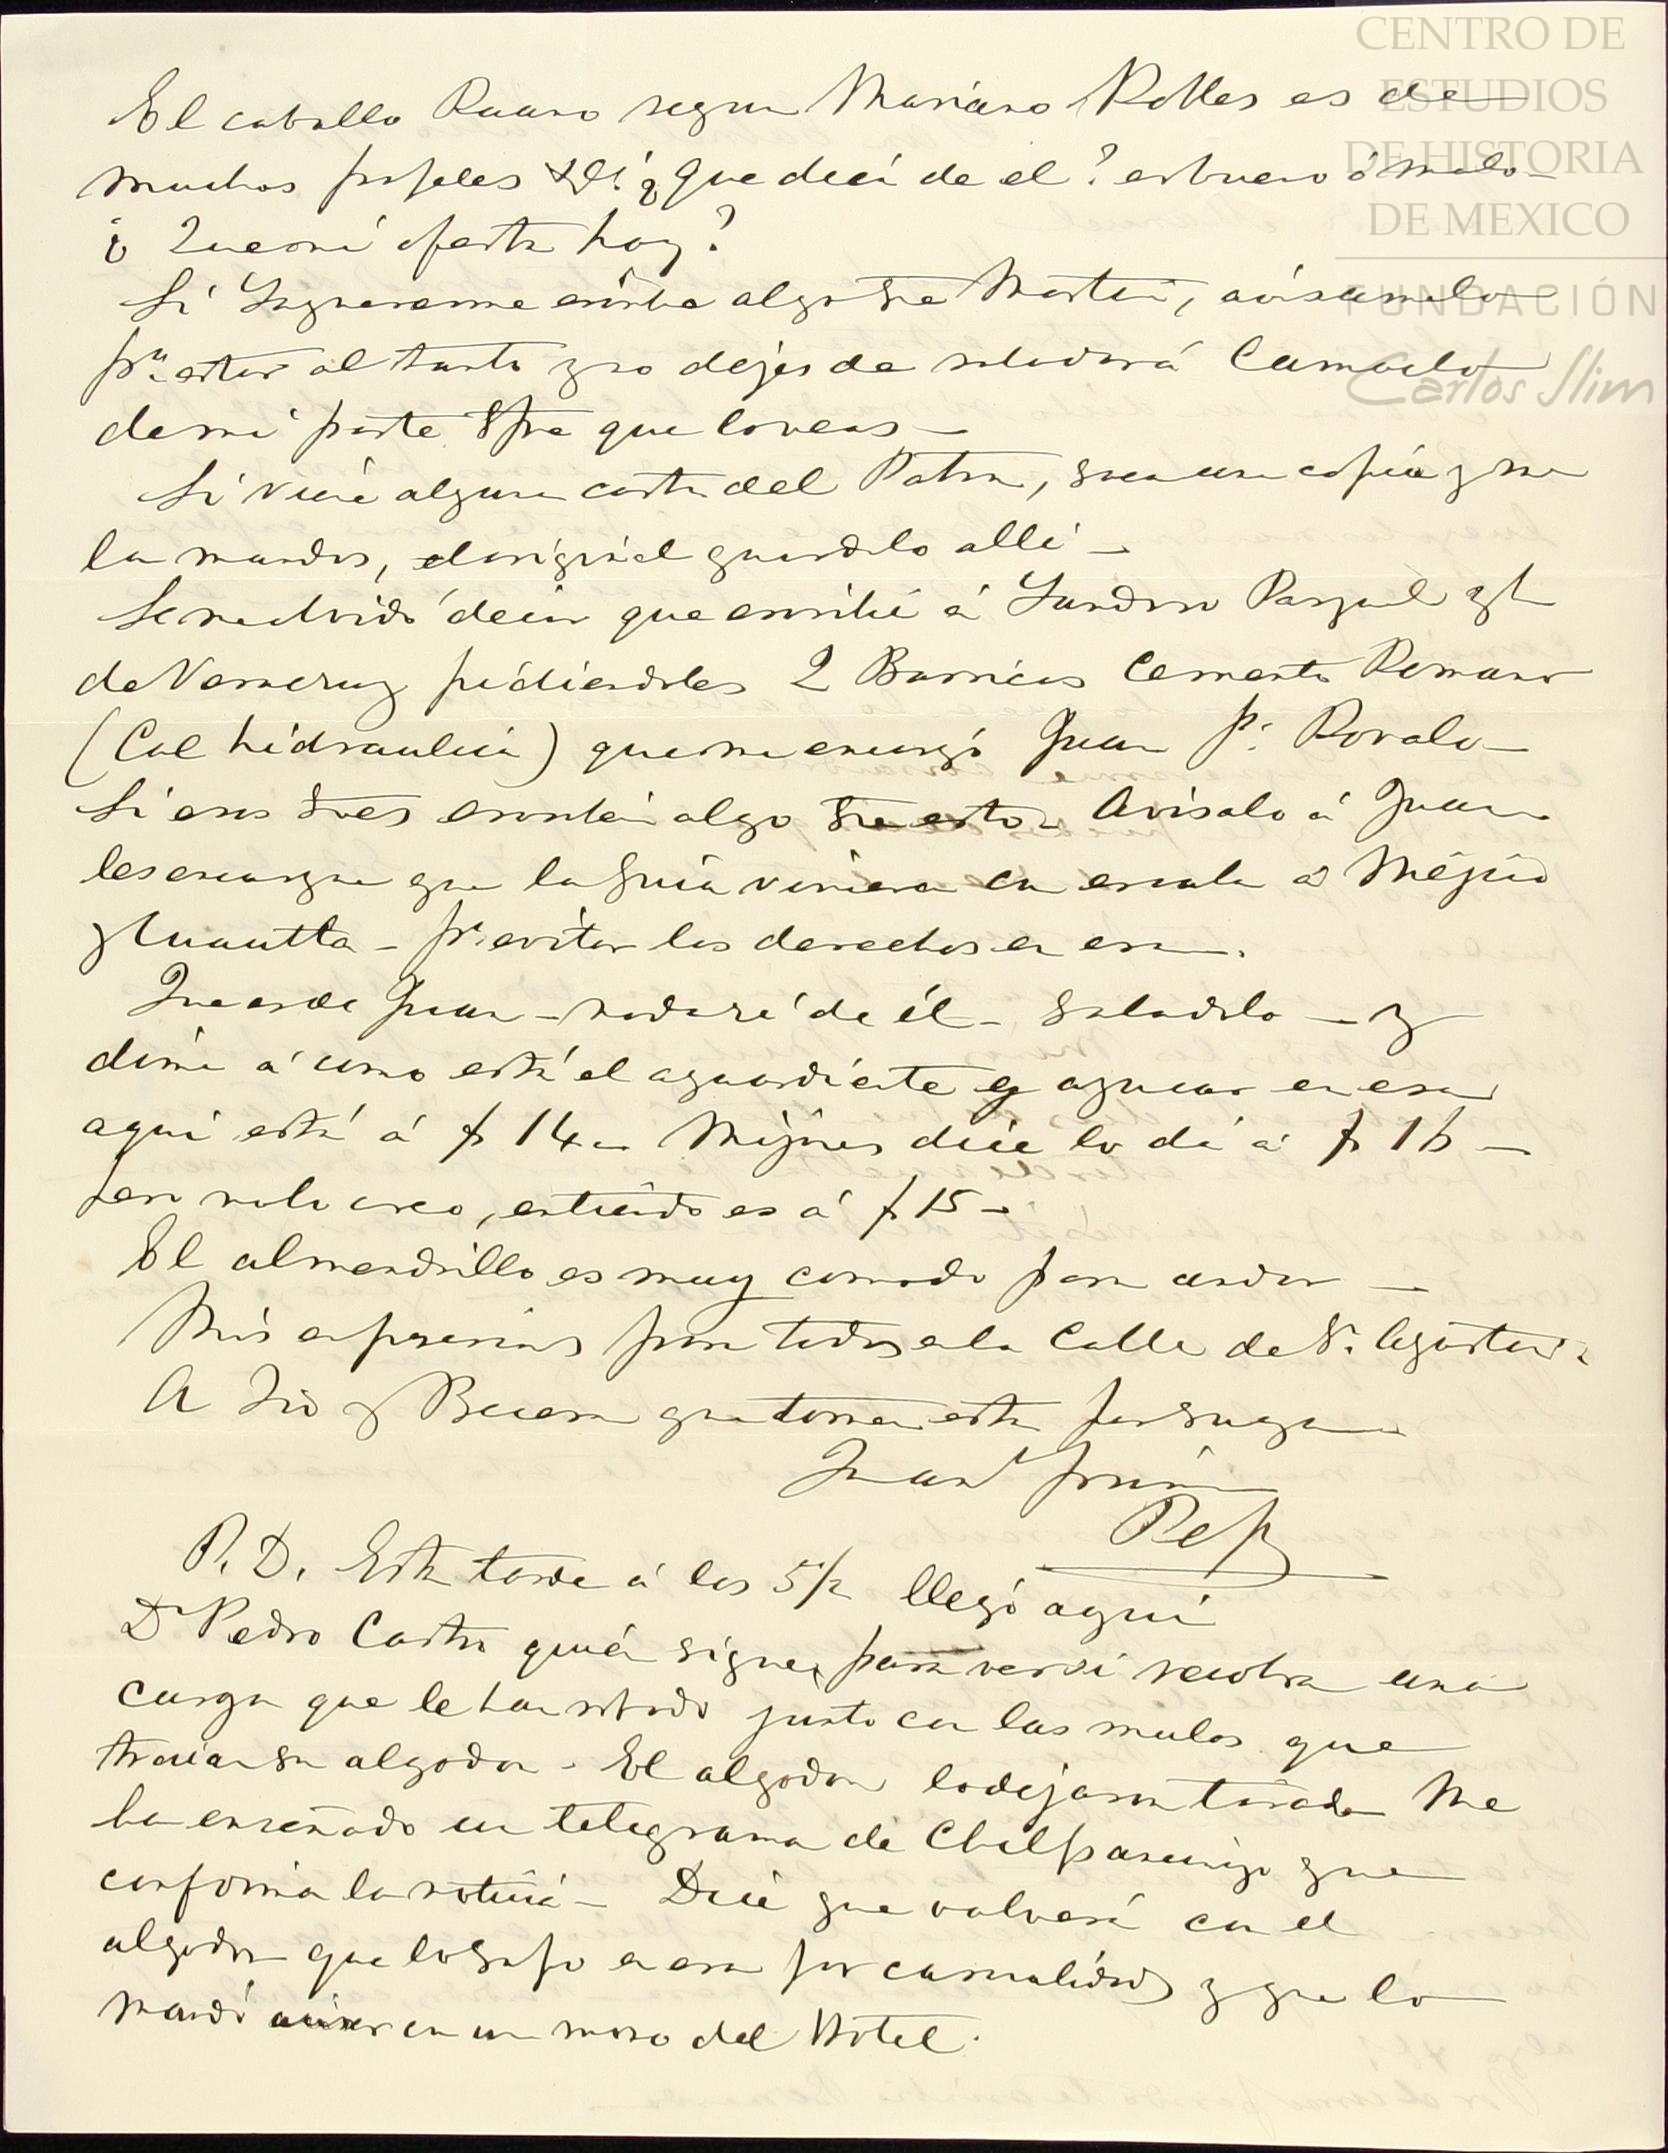 CENTRO DE
ESTUDIOS
DE HISTORIA
DE MEXICO
FUNDACIÓN
Carlos Slim
El caballo Ruano segun Mariano Robles es de
muchos ¿Que decia de el? es bueno ó malo
¿ Que oferta hay?
Si escribe algo sre Martin, avisamelo
pa. estar al tanto y no dejes de saludar á
de mi parte Spre que lo veas _
Si viene alguna carta del Patron, saca una copia y me
la mandas, el original guardalo allí _
Se me olvidó decir que escribi á Pasquel y Ca
de Veracruz pidiendoles 2 Barricas Cemento Romano
(Cal hidraulica) que me encargó Juan Pe. Rovalo _
Si esos Sres escriben algo sre esto _ Avisalo á Juan
les encargue que la guia viniera con escala á Mégico
y Cuautla _ pa. evitar los derechos en esa _.
Que es de Juan _ nada sé de él _ Saludalo _ y
dime á como está el aguardiente y azucar en esa
aqui está á $ 14 _ Mijares dice lo dá á $ 16 _
pero no lo creo, entiendo es á $ 15 _
El almendrillo es muy comodo para andar _
Mis espresiones para todos en la Calle de S. Agustin _
A Dio y Buena que tomen esta por suya _
Juan
Pe
P. D. Esta tarde á las 5 1/2 llegó aqui
Dn Pedro Castro quién sigue, para ver si recobra una
carga que le han robado junto con las mulas que
traian su algodon _ El algodon lo dejaron tirado Me
ha enseñado un telegrama de Chilpancingo que
confirma la noticia _ Dice que volverá con el
algodon que lo supo en esa por casualidad y que lo
mandó avisar con un mozo del Hotel.